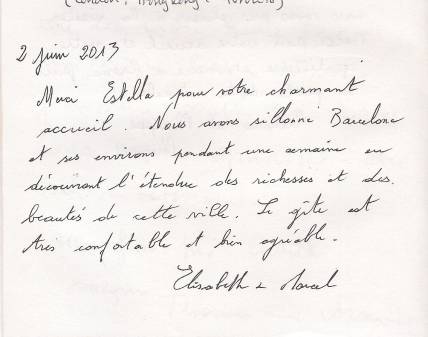 (London, Hong Kong, Toronto)
2 juin 2013
Merci Estella pour votre charmant
accueil. Nous avons sillonné Barcelone
et ses environs pendant une semaine en
découvrant l'étendue des richesses et des
beautés de cette ville. Le gîte est
très confortable et bien agréable.
Elisabeth & Marcel